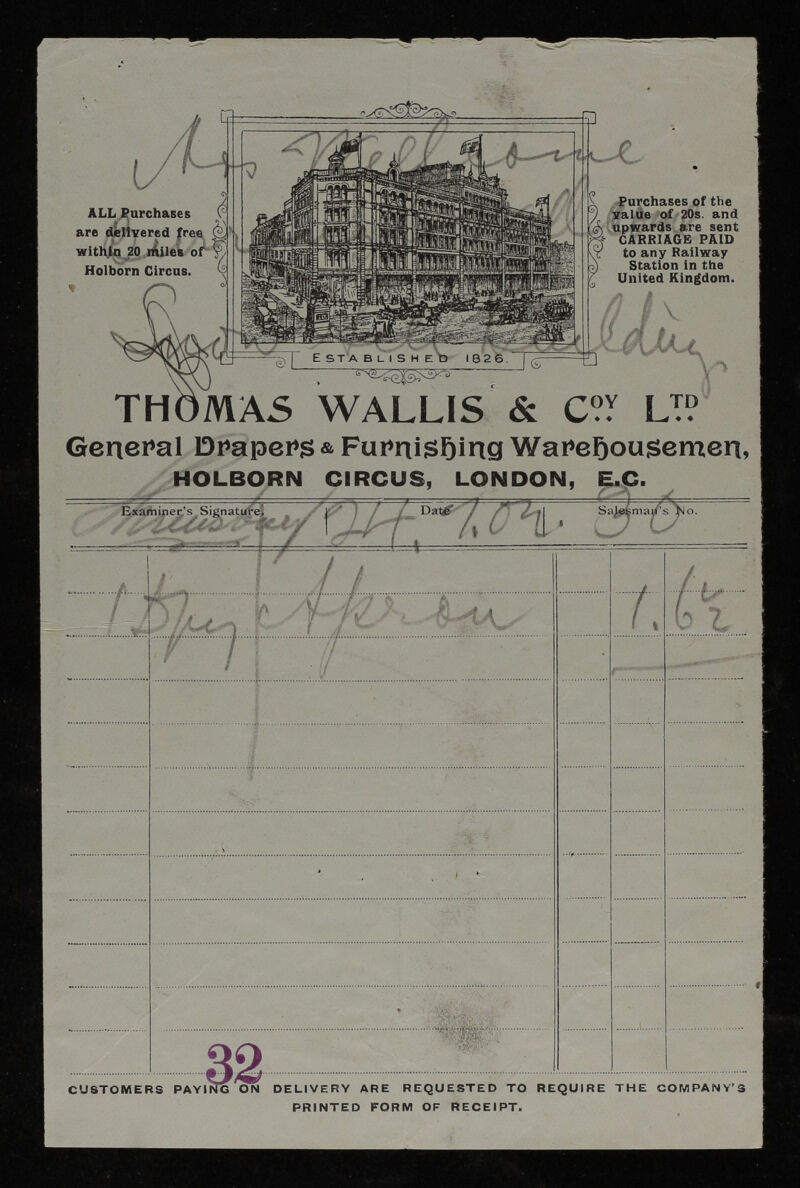 Mrs Wellcome
ALL Purchases
are delivered free
within 20 miles of
Holborn Circus.
Purchases of the
value of 20s. and
upwards are sent
CARRIAGE PAID
to any Railway
Station in the
United Kingdom.
Snow Hill Building
ESTABLISHED 1826.
THOMAS WALLIS & COY LTD
General Drapers & Furnishing Warehousemen,
HOLBORN CIRCUS, LONDON, E.C.
Examiner's Signature. Date Salesman's No.
7.02. 30
1 Apron 1.6½
32
CUSTOMERS PAYING ON DELIVERY ARE REQUESTED TO REQUIRE THE COMPANY'S
PRINTED FORM OF RECEIPT.